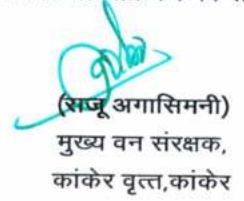 (राजू अगासिमनी)
मुख्य वन संरक्षक,
कांकेर वृत्त,कांकेर